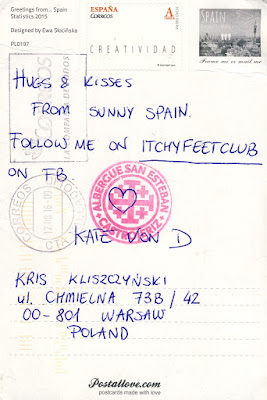 Greetings from... Spain
Statistics 2015
Designed by Ewa Słocińska
PL0197
ESPAÑA
CORREOS
A
CREATIVIDAD
SPAIN
HUGS & KISSES
FROM SUNNY SPAIN.
FOLLOW ME ON ITCHYFEETCLUB
ON FB.
ALBERGUE SAN ESTEBAN
CASTROJERIZ
CORREOS
KATE VON D
KRIS KLISZCZYŃSKI
ul. CHMIELNA 73B / 42
00-801 WARSAW
POLAND
Postallove.com
postcards made with love